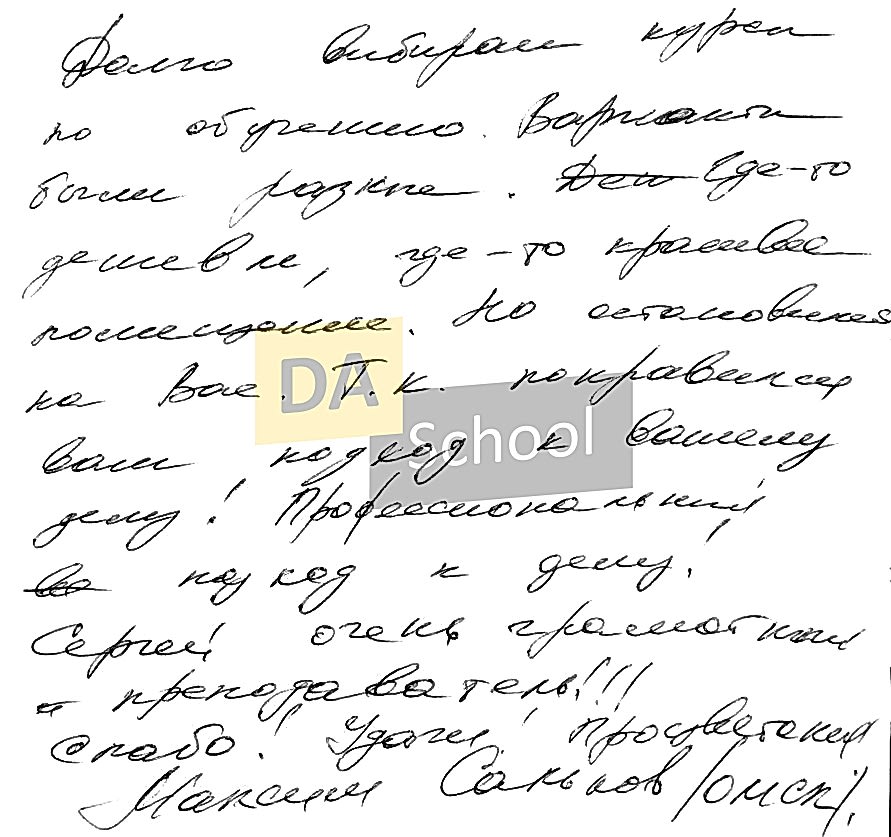 Долго выбирал курсы
по обучению. Варианты
были разные. Деш Где-то
дешевле, где-то красивее
помещение. Но остановился
на Вас. Т.к. понравился
ваш подход к вашему
делу! Профессиональный
подход к делу!
Сергей очень грамотный
преподаватель!!!
Спасибо! Удачи! Процветания
Максим Саньков /омск/.
DA
School